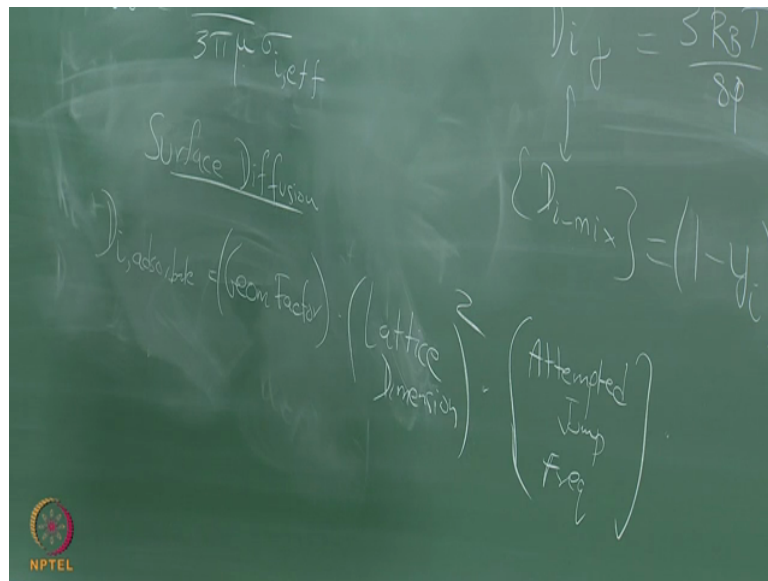 3πμ σi,eff
Di j = 5 RB T
8φ
Surface Diffusion
{Di-mix} = (1-yi
Di,adsorbate = (Geom Factor) · (Lattice Dimension)² · (Attempted Jump Freq) ·
NPTEL